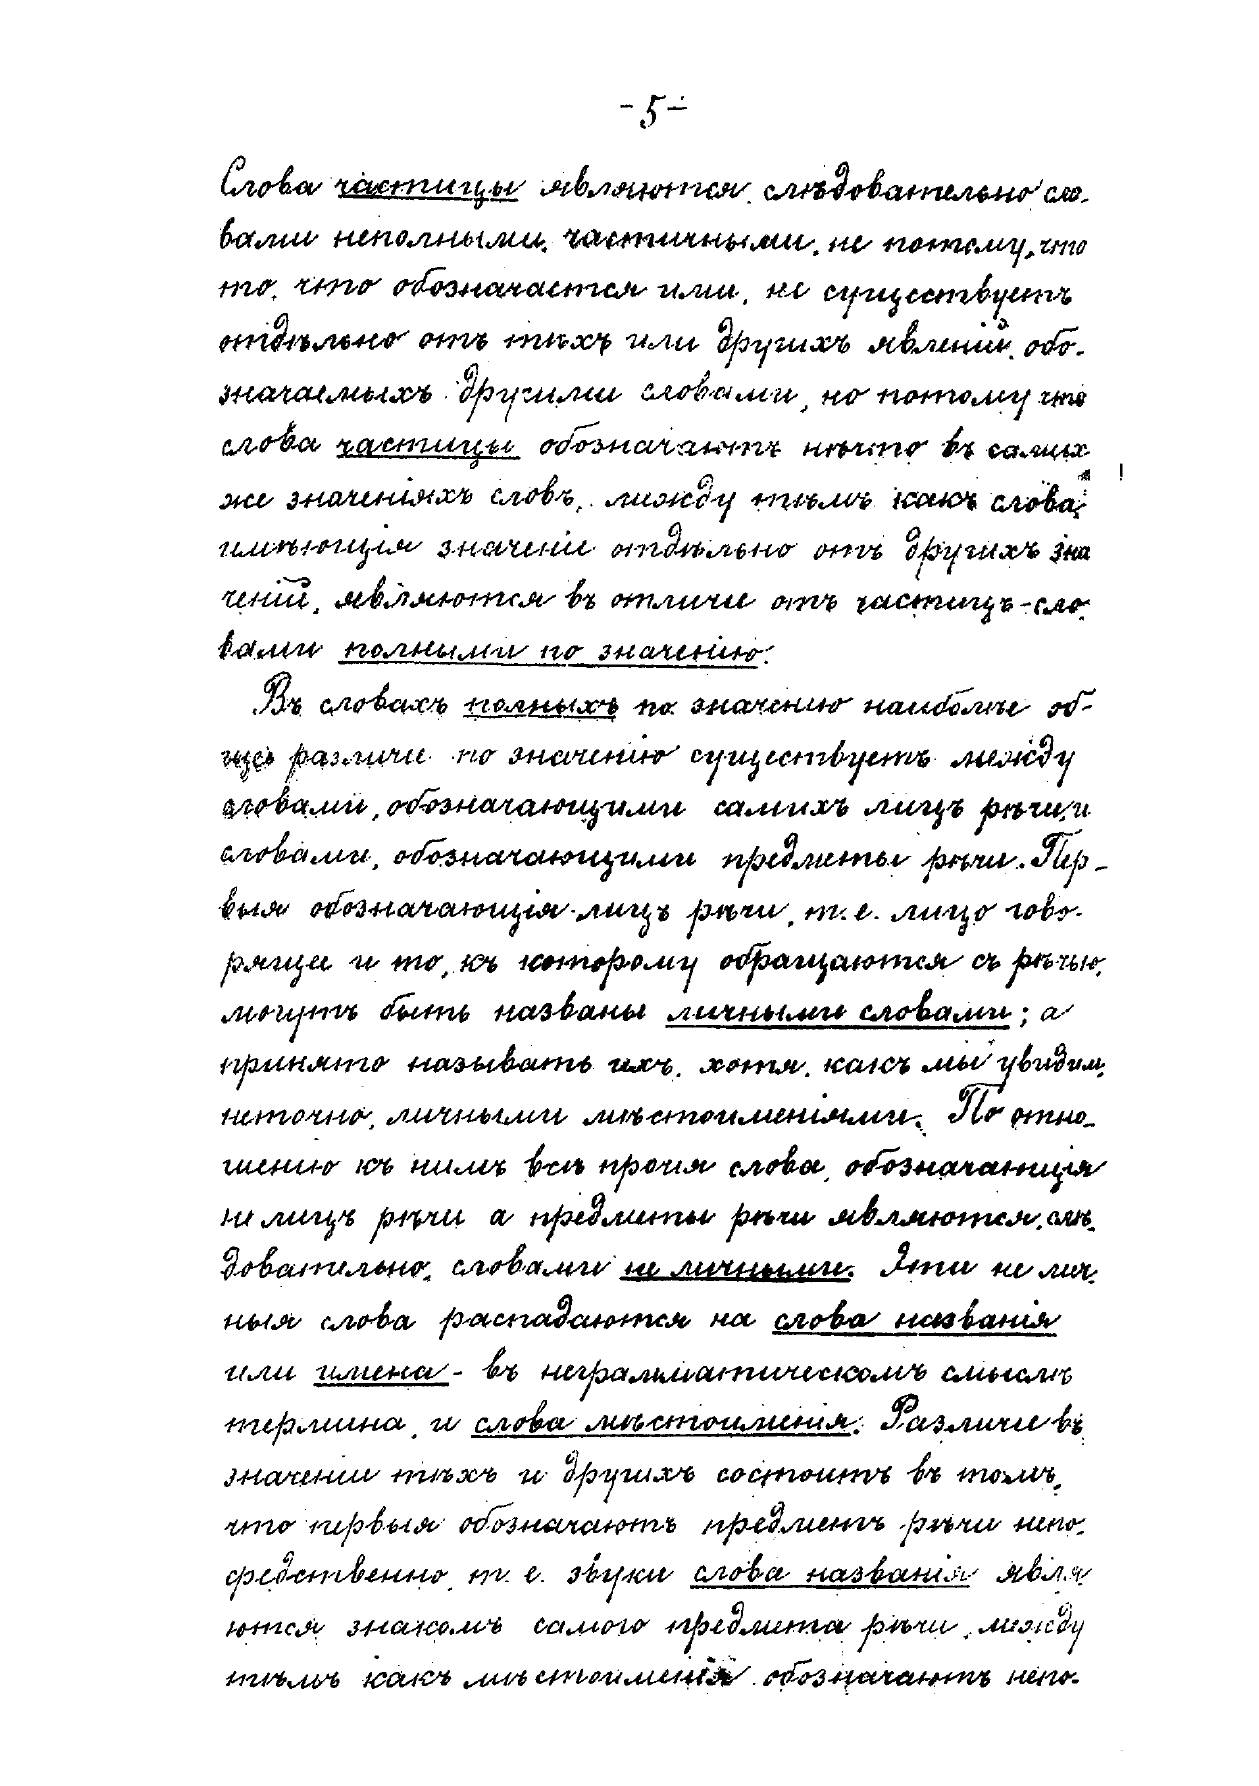 -5-
Слова частицы являются, слѣдовательно сло-
вами неполными, частичными, не потому, что
то, что обозначается ими, не существуетъ
отдѣльно отъ тѣхъ или другихъ явленій, обо-
значаемыхъ другими словами, но потому что
слова частицы обозначаютъ нѣчто въ самих
же значеніяхъ словъ, между тѣмъ какъ слова,
имѣющія значеніе отдѣльно отъ другихъ зна
ченій, являются въ отличіе отъ частицъ-сло-
вами полными по значенію.
Въ словахъ полныхъ по значенію наиболѣе об-
щее различіе по значенію существуетъ между
словами, обозначающими самихъ лицъ рѣчи, и
словами, обозначающими предметы рѣчи. Пер-
выя обозначающія лицъ рѣчи, т.е. лицо гово-
рящее и то, къ которому обращаются съ рѣчью,
могутъ быть названы личными словами; а
принято называть ихъ, хотя, какъ мы увидим,
неточно, личными мѣстоименіями. По отно-
шенію къ нимъ всѣ прочія слова, обозначающія
не лицъ рѣчи а предметы рѣчи являются, слѣ-
довательно, словами не личными. Эти не лич-
ныя слова распадаются на слова названія
или имена - въ неграмматическомъ смыслѣ
термина, и слова мѣстоименія. Различіе въ
значеніи тѣхъ и другихъ состоитъ въ томъ,
что первыя обозначаютъ предметъ рѣчи непо-
средственно, т. е. звуки слова названія явля
ются знакомъ самого предмета рѣчи, между
тѣмъ какъ мѣстоименія обозначаютъ непо-